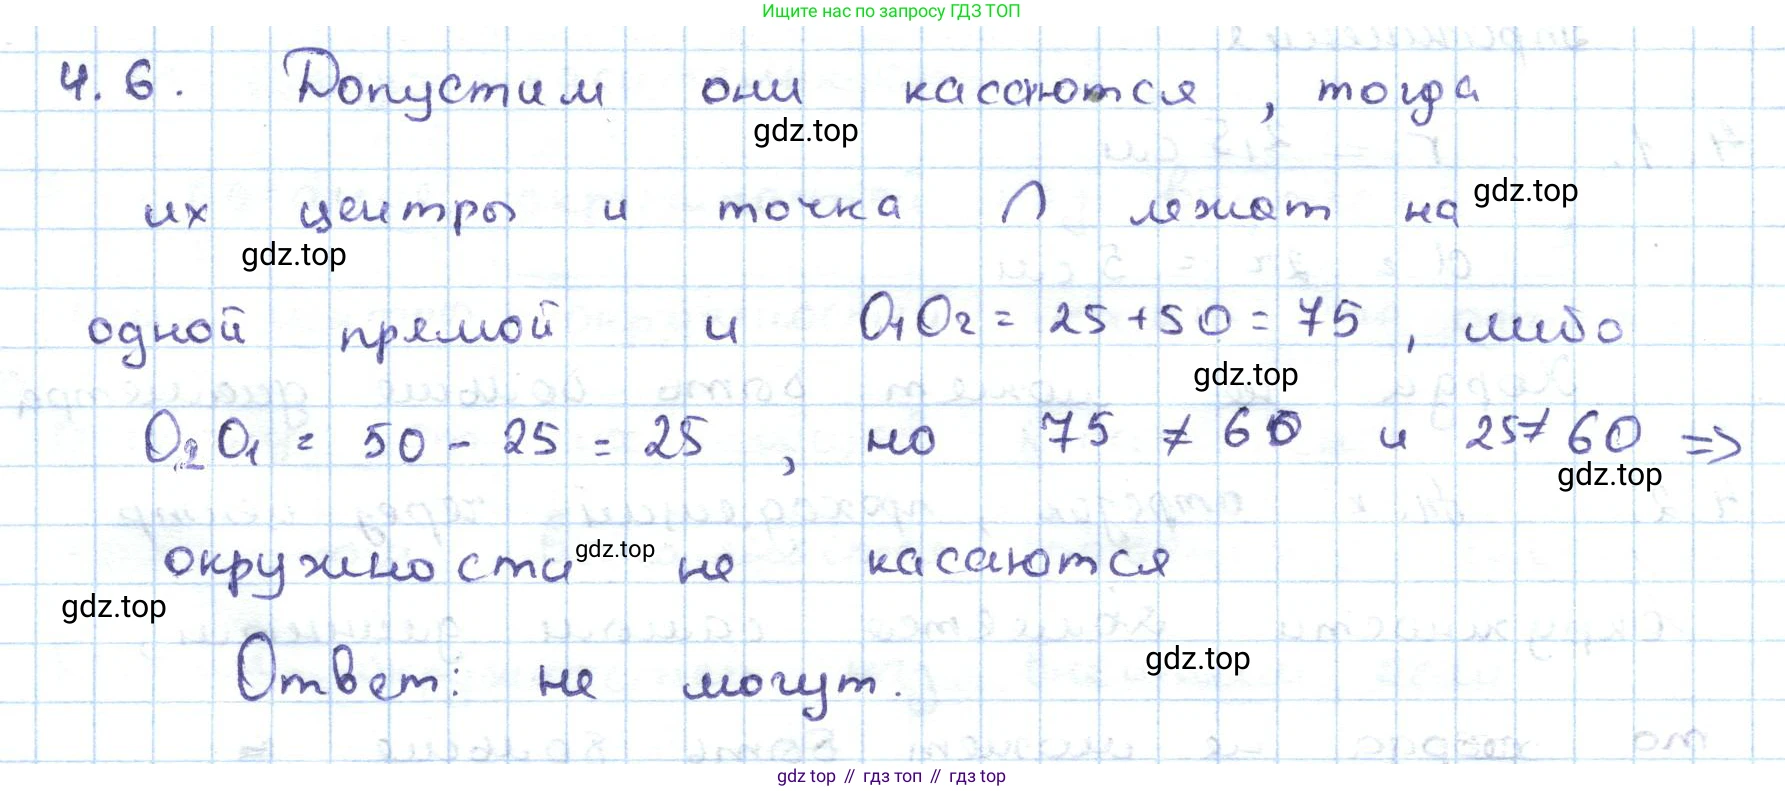 Ищите нас по запросу ГДЗ ТОП
4.6. Допустим они касаются, тогда
gdz.top
их центры и точка ∩ лежат на
gdz.top
gdz.top
одной прямой и O₁O₂ = 25 + 50 = 75, либо
gdz.top
O₂O₁ = 50 - 25 = 25, но 75 ≠ 60 и 25 ≠ 60 =>
gdz.top
окружности не касаются
gdz.top
gdz.top
Ответ: не могут.
gdz.top
gdz top // гдз топ // гдз top